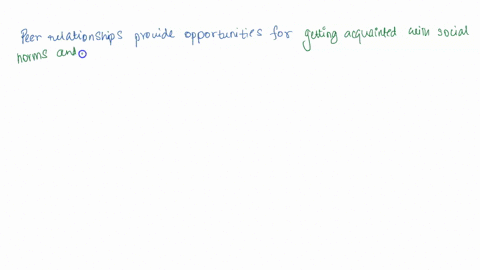 Peer relationships provide opportunities for getting acquainted with social
norms and